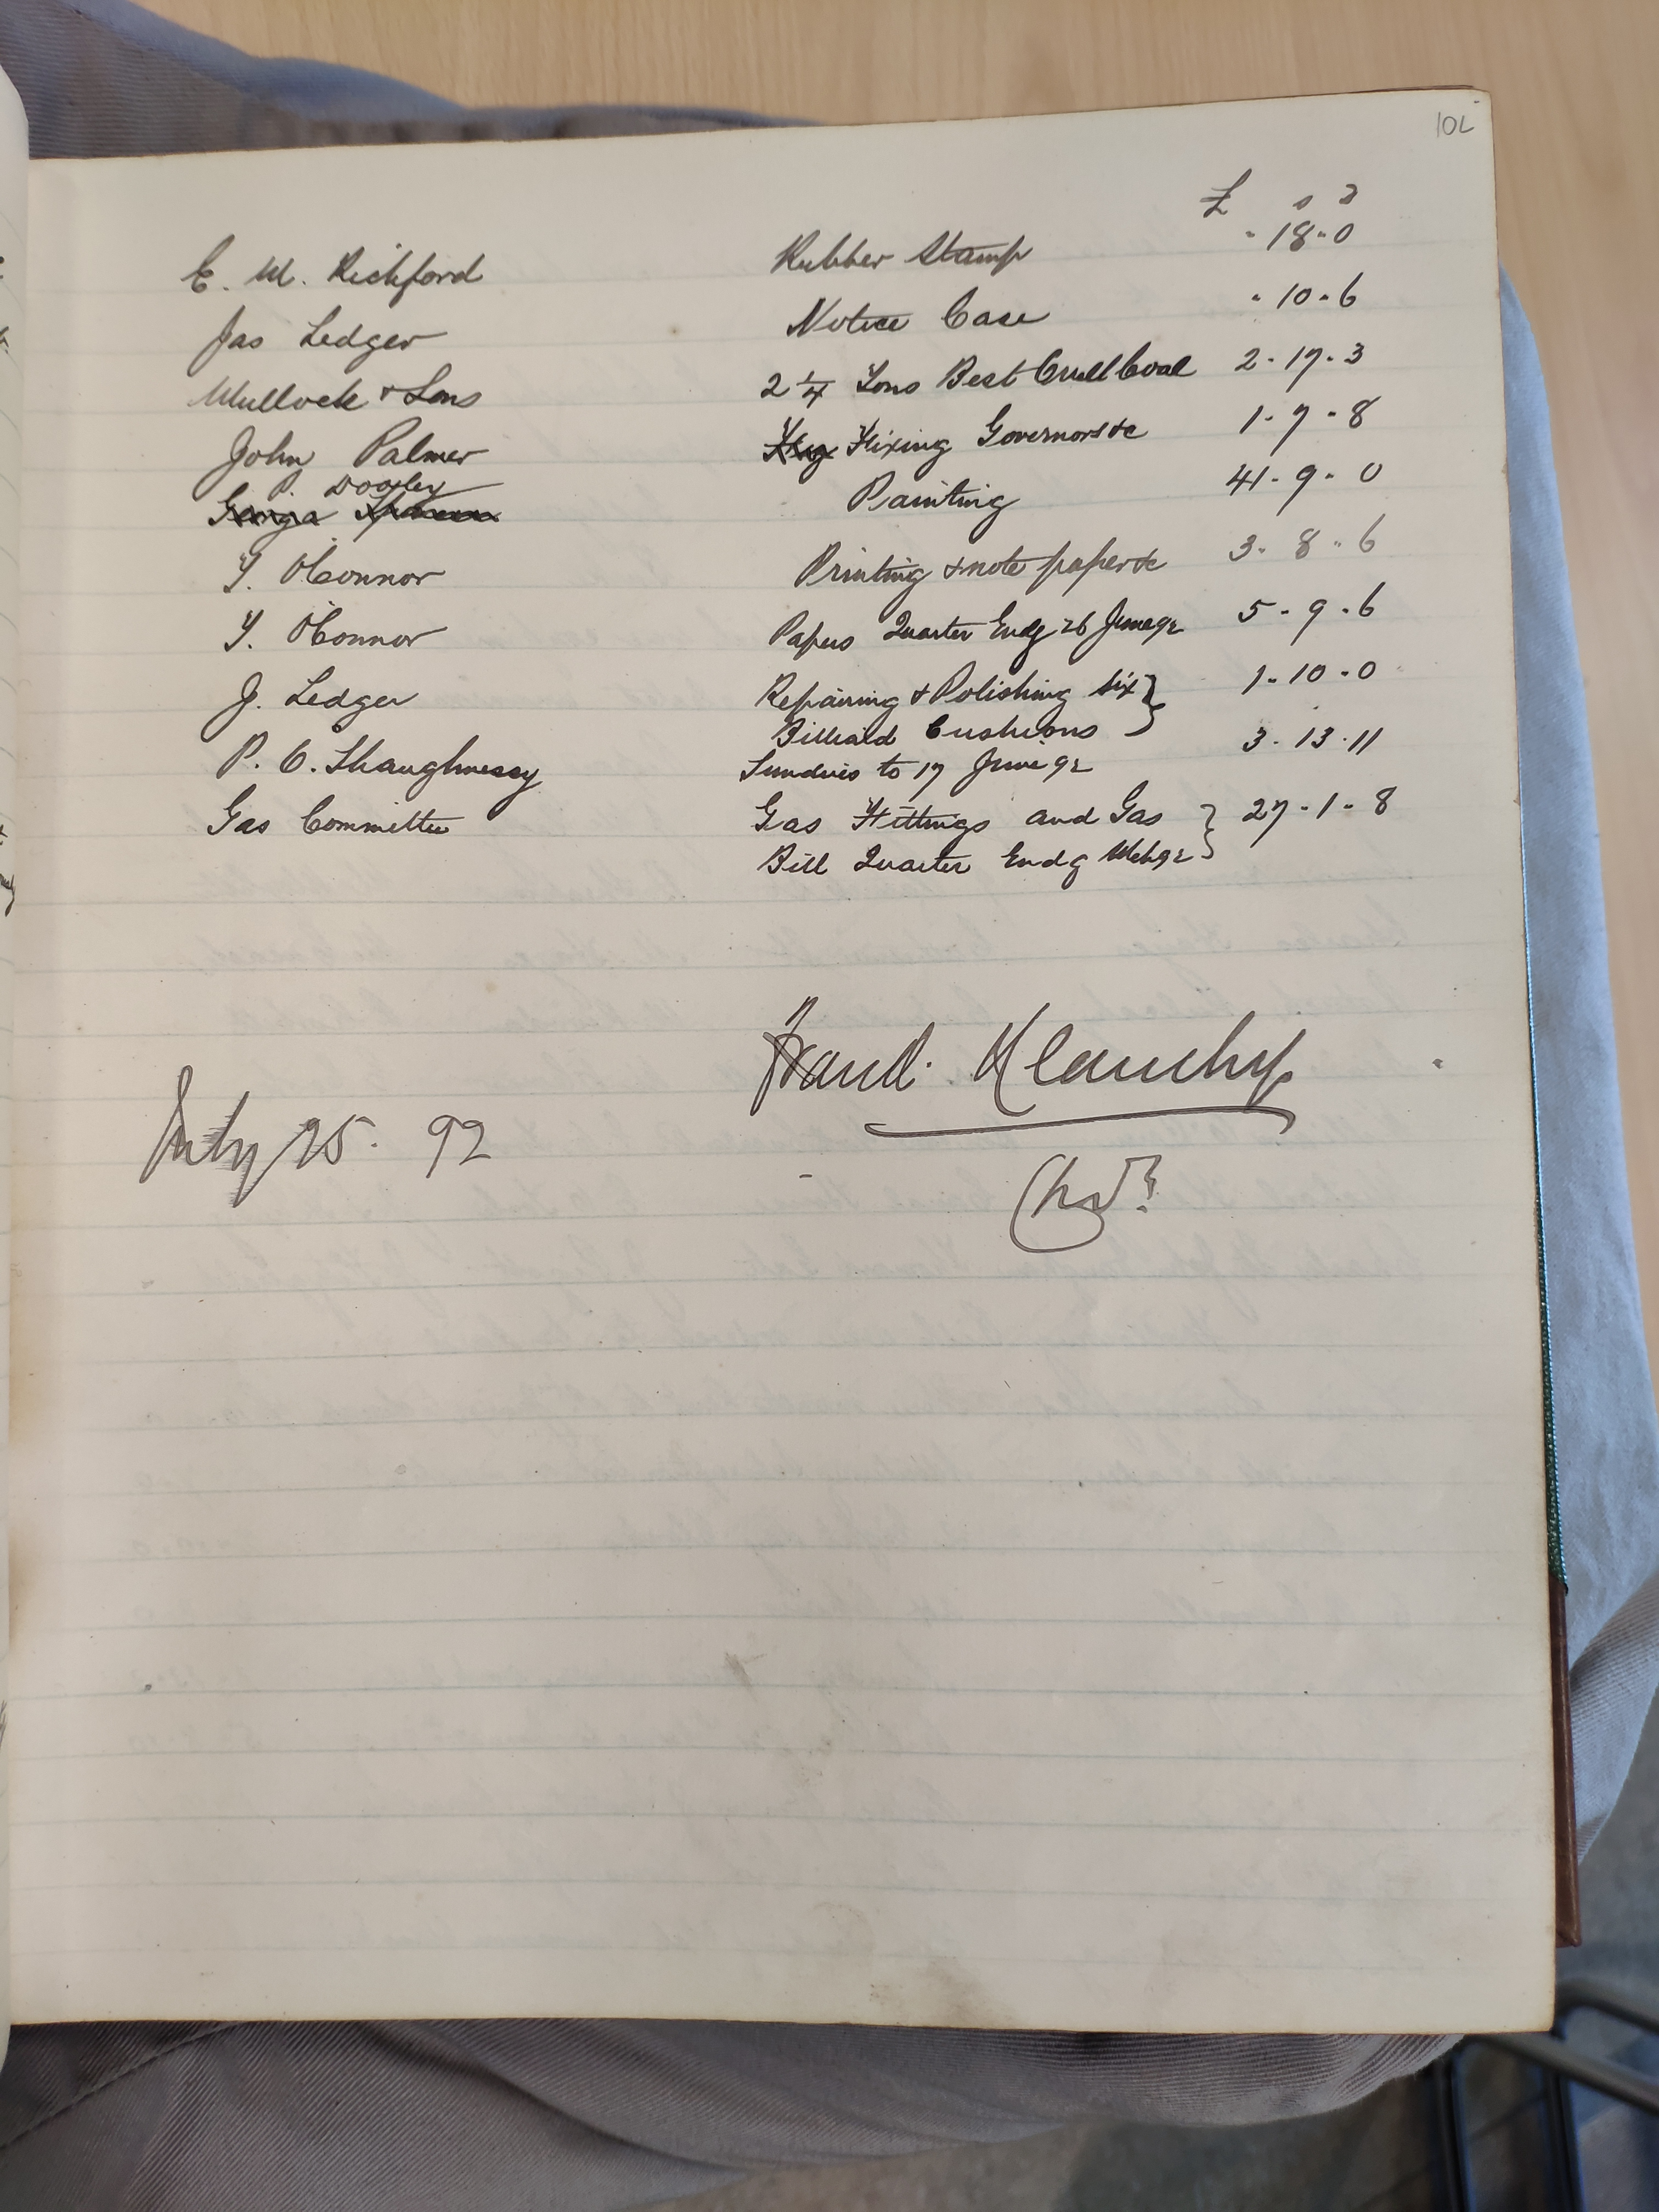 102
£ s d
E. M. Richford Rubber Stamp " 18 " 0
Jas Ledger Notice Case " 10 " 6
Mullock & Sons 2 1/4 Tons Best Coal 2 " 17 " 3
John Palmer Fixing Governors &c 1 " 7 " 8
P. Dooley
George Painting 41 " 9 " 0
T. O'Connor Printing & note paper &c 3 " 8 " 6
T. O'Connor Papers Quarter Endg 26 June 92 5 " 9 " 6
J. Ledger Repairing & Polishing six } 1 " 10 " 0
Billiard Cushions
P. O. Shaughnessy Sundries to 17 June 92 3 " 13 " 11
Gas Committee Gas Fittings and Gas } 27 " 1 " 8
Bill Quarter Endg Mch 92
July 25. 92